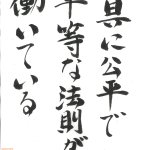 真に公平で
平等な法則が
働いている